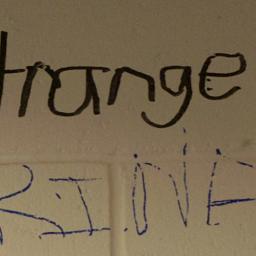 trange
RINE